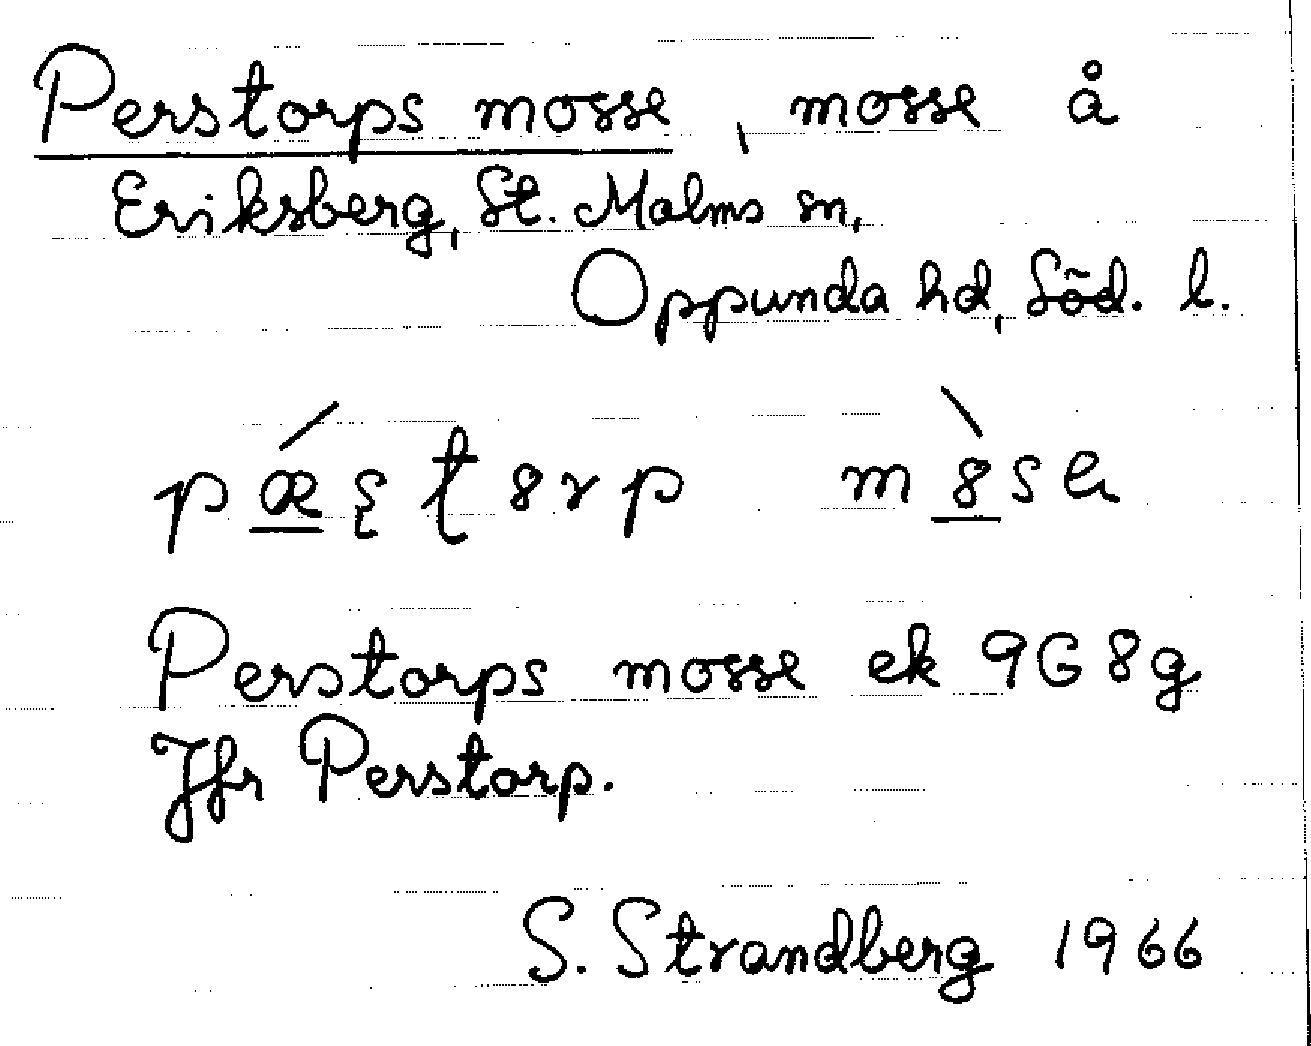 Perstorps mosse, mosse å
Eriksberg, St. Malms sn,
Oppunda hd, Söd. l.
pǽʂʈ8rp m8̀sa
Perstorps mosse ek 9G8g
Jfr Perstorp.
S. Strandberg 1966